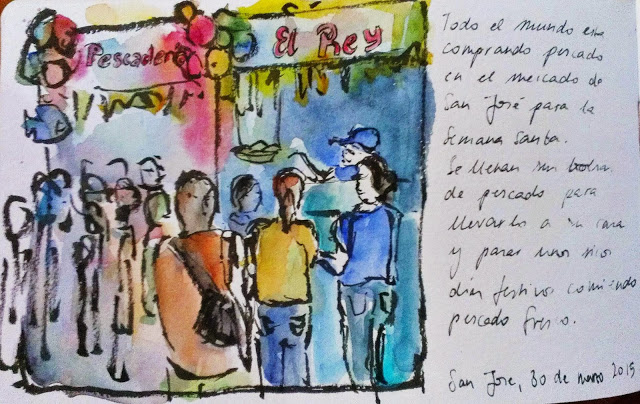 Pescadería
El Rey
Todo el mundo esta
comprando pescado
en el mercado de
San José para la
Semana Santa.
Se llevan sus bolsas
de pescado para
llevarlo a su casa
y pasar unos ricos
días festivos comiendo
pescado fresco.
San Jose, 30 de marzo 2015